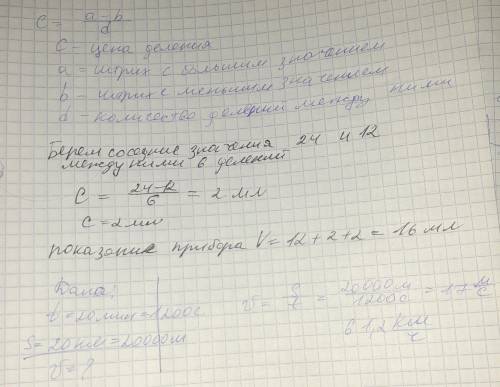 c = a-b/d
c - цена деления
a = штрих с большим значением
b - штрих с меньшим значением
d - количество делений между ними
Берем соседние значения 24 и 12
между ними 6 делений
C = 24-12/6 = 2 мл
C = 2 мл
показание прибора V = 12 + 2 + 2 = 16 мл
Дано:
t = 20 мин = 1200с
S = 20 км = 20000м
v = ?
v = S/t = 20000м/1200с = 17 м/с
61,2 км/ч